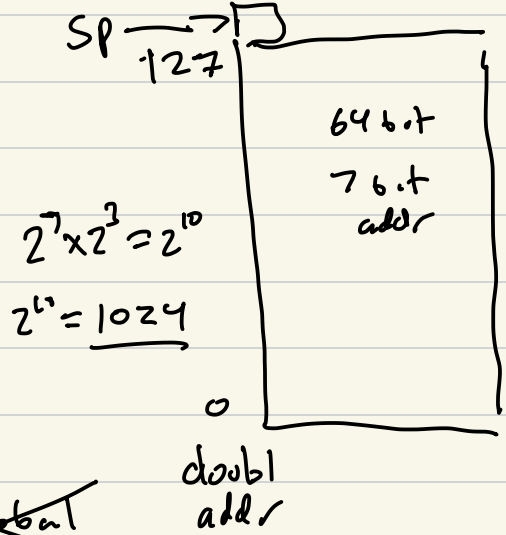 Sp
127
64 bit
7 bit
addr
2^7 x 2^3 = 2^10
2^10 = 1024
0
doubl
addr